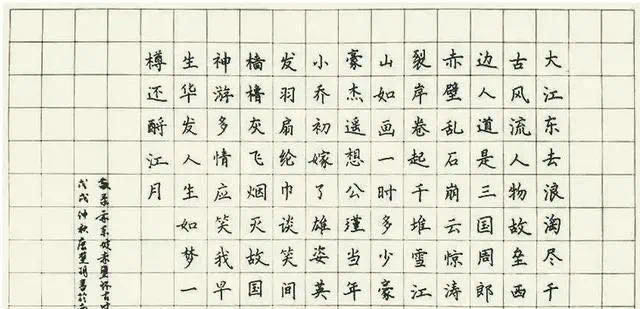 大江东去浪淘尽千
古风流人物故垒西
边人道是三国周郎
赤壁乱石崩云惊涛
裂岸卷起千堆雪江
山如画一时多少豪
豪杰遥想公瑾当年
小乔初嫁了雄姿英
发羽扇纶巾谈笑间
樯橹灰飞烟灭故国
神游多情应笑我早
生华发人生如梦一
樽还酹江月
敬录苏东坡赤壁怀古
戊戌仲秋唐楚明书於